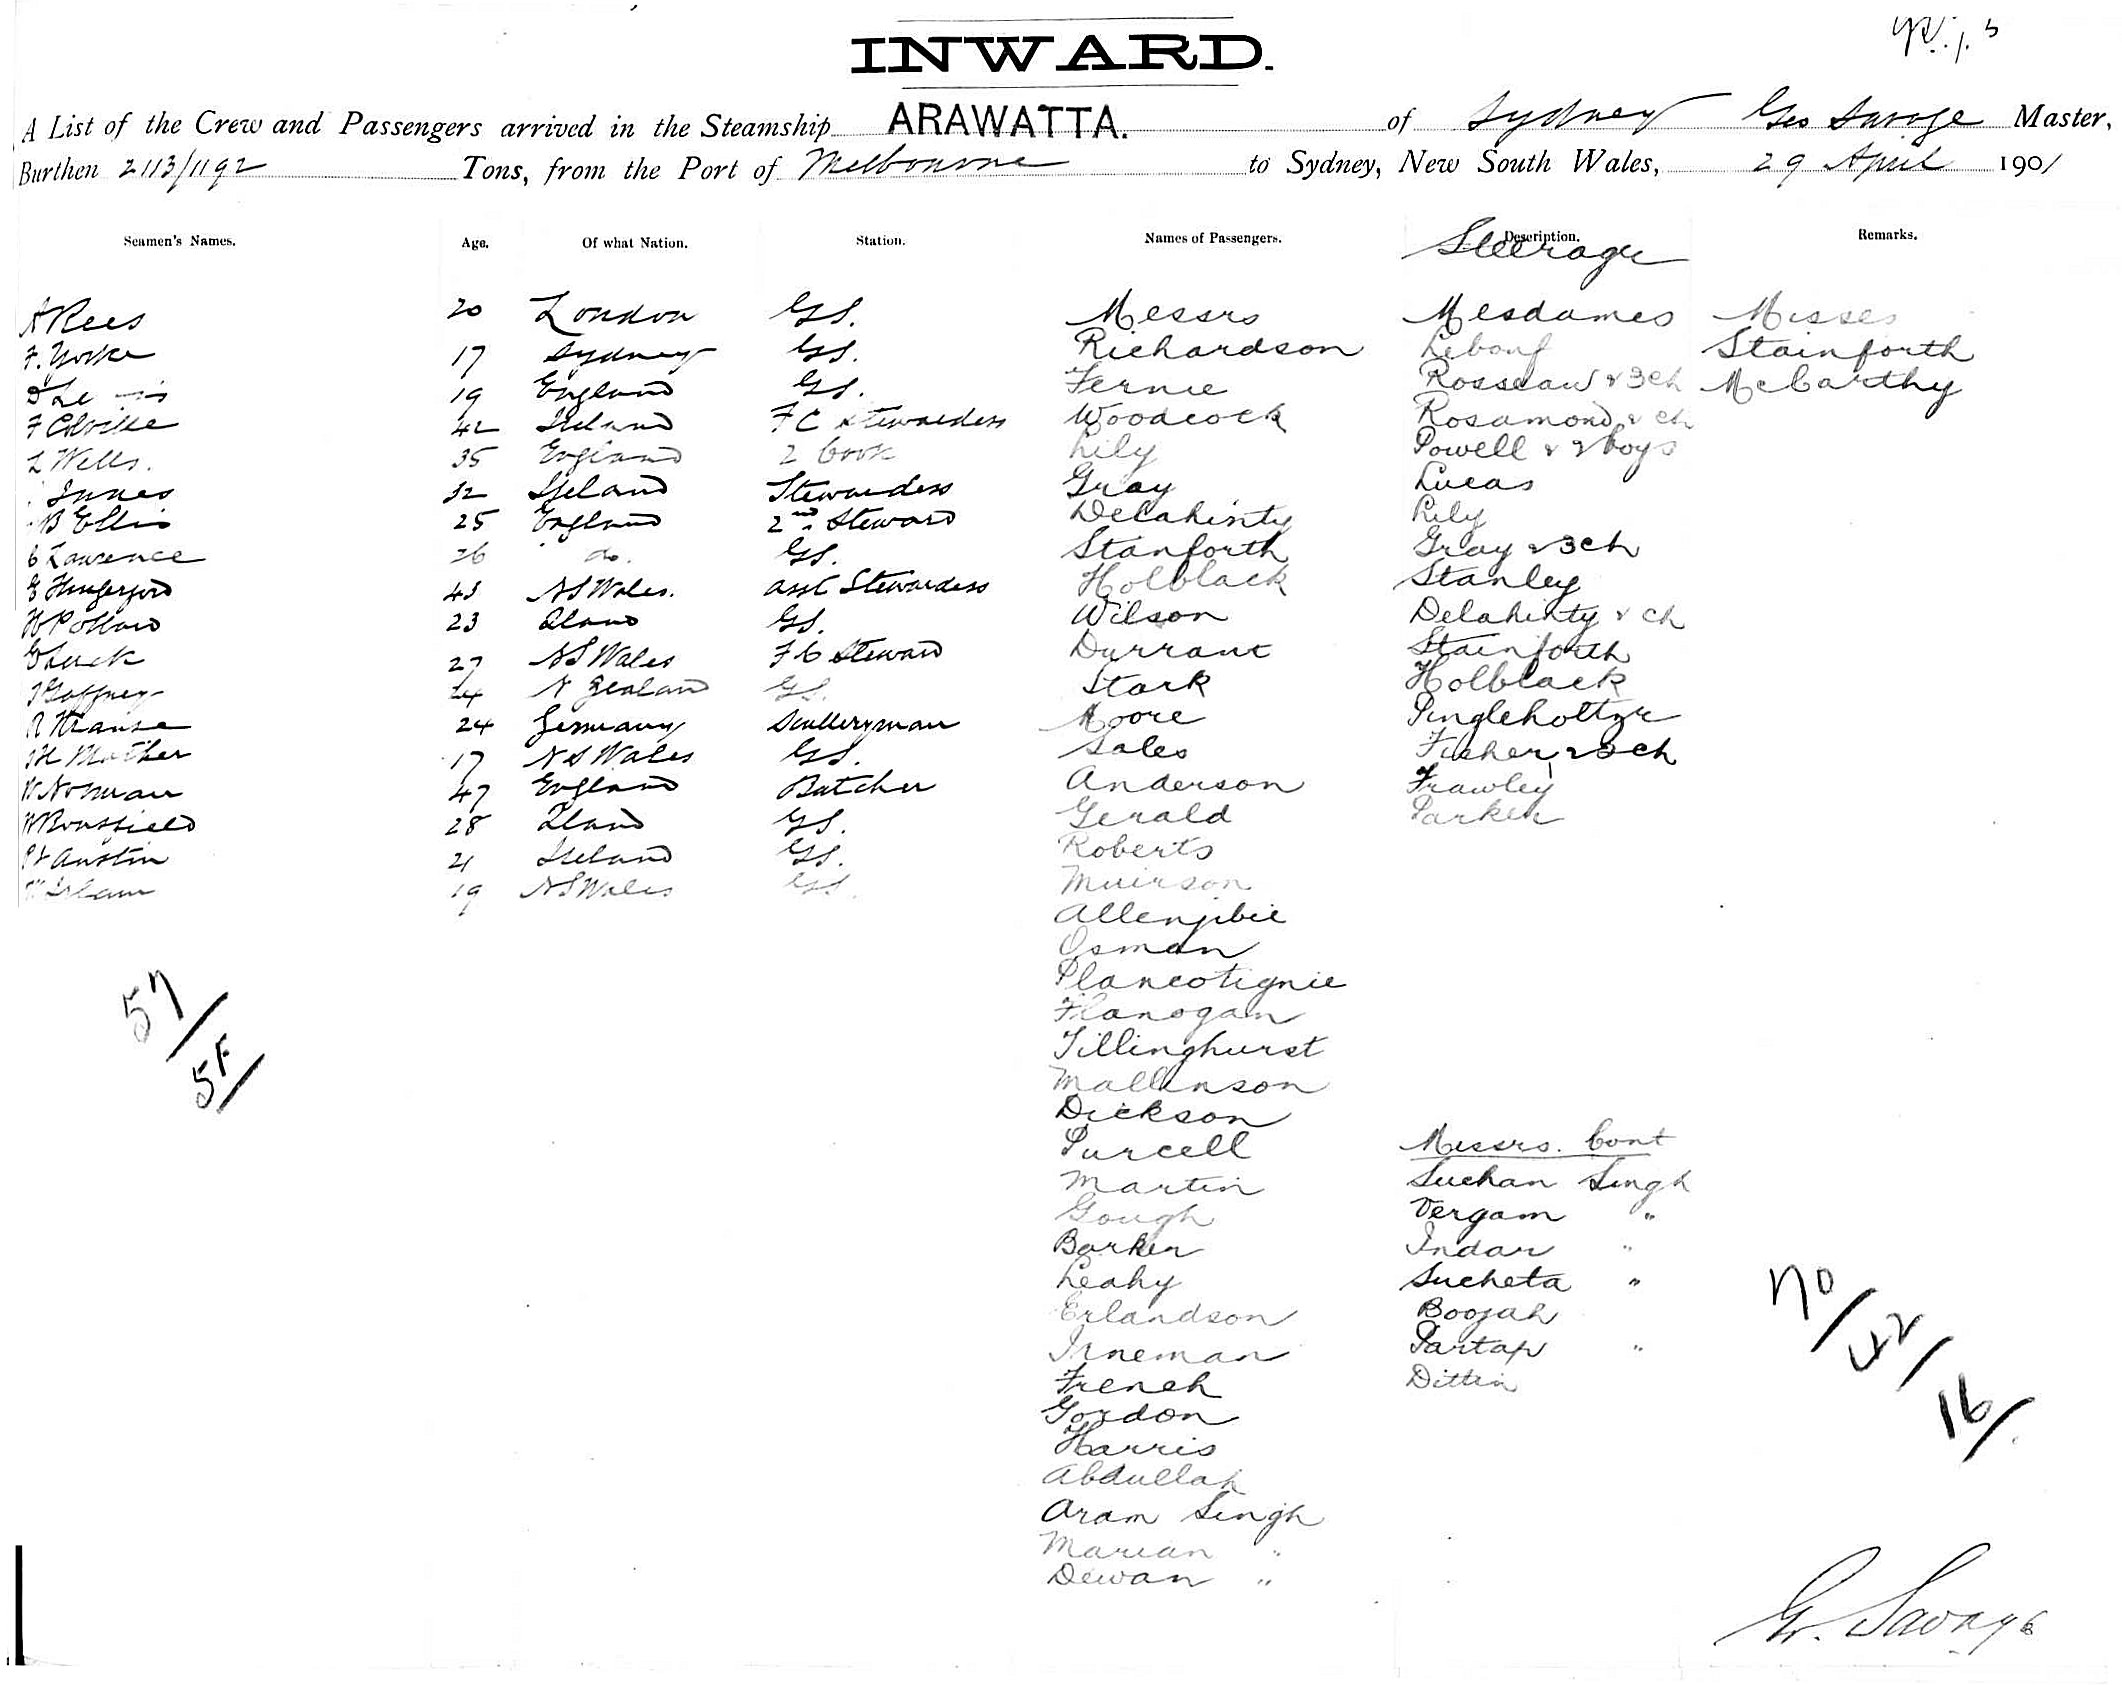 INWARD.
A List of the Crew and Passengers arrived in the Steamship ARAWATTA. of Sydney Geo Savage Master,
Burthen 2113/1192 Tons, from the Port of Melbourne to Sydney, New South Wales, 29 April 1901
Seamen's Names. Age. Of what Nation. Station. Names of Passengers. Description. Remarks.
Steerage
A Rees 20 London GS. Messrs Mesdames Misses
F. Yorke 17 Sydney GS. Richardson Lebouf Stainforth
19 England GS. Fernie Rosseau & 3ch McCarthy
F Colville 42 Ireland F C Stewardess Woodcock Rosamond & ch
L Wells. 35 England 2 Cook Lily Powell & 2 boys
Innes 32 Ireland Stewardess Gray Lucas
B Ellis 25 England 2nd Steward Delahinty Lily
C Lawrence 26 do. GS. Stanforth Gray & 3ch
E Hungerford 43 N S Wales. asst Stewardess Holblack Stanley
W Pollard 23 Qland GS. Wilson Delahinty & ch
G Luck 27 N S Wales F C Steward Durrant Stainforth
Gaffney 24 N Zealand GS. Stark Holblack
R Krause 24 Germany Sculleryman Moore Pingleholtzr
H Mather 17 N S Wales GS. Sales Fisher & 3 ch
W Norman 47 England Butcher Anderson Frawley
W Bousfield 28 Qland GS. Gerald Parker
Austin 21 Ireland GS. Roberts
19 N S Wales GS. Muirson
Allenjibie
Osman
Plancotignie
Flanogan
Tillinghurst
Mallinson
Dickson
Purcell Messrs. Cont
Martin Suchan Singh
Gough Vergam "
Barker Indar "
Leahy Sucheta "
Erlandson Boojah
Irneman Partap "
French Dittin
Gordon
Harris
Abdullah
Aram Singh
Marian "
Dewan "
57/
58/
70/
42/
16/
G. Savage